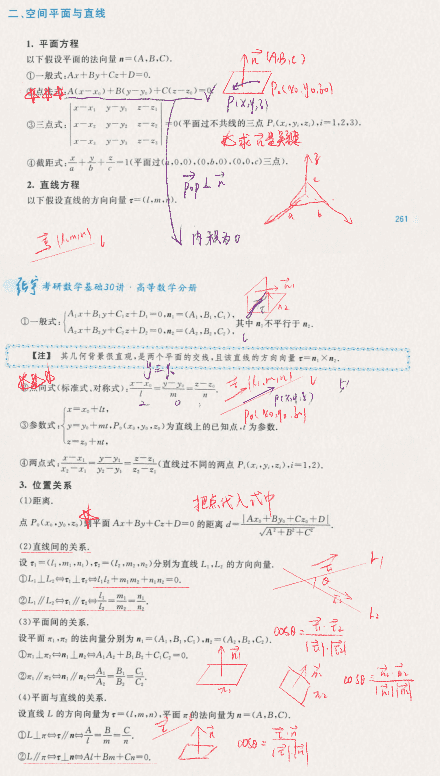 二、空间平面与直线
1. 平面方程
以下假设平面的法向量 n=(A,B,C).
n⃗ (A,B,C)
①一般式:Ax+By+Cz+D=0.
②点法式:A(x-x₀)+B(y-y₀)+C(z-z₀)=0.
P₀(x₀,y₀,z₀)
P(x,y,z)
③三点式:
|x-x₁ y-y₁ z-z₁|
|x-x₂ y-y₂ z-z₂|=0(平面过不共线的三点 Pᵢ(xᵢ,yᵢ,zᵢ),i=1,2,3).
|x-x₃ y-y₃ z-z₃|
求n⃗是关键
④截距式:x/a+y/b+z/c=1(平面过(a,0,0),(0,b,0),(0,0,c)三点).
P₀P⃗⊥n⃗
a b c
2. 直线方程
以下假设直线的方向向量 τ=(l,m,n).
261
(l,m,n)
内积为0
张宇考研数学基础30讲·高等数学分册
①一般式:{A₁x+B₁y+C₁z+D₁=0,n₁=(A₁,B₁,C₁),
A₂x+B₂y+C₂z+D₂=0,n₂=(A₂,B₂,C₂), 其中 n₁不平行于 n₂.
n⃗₁
n⃗₂
【注】 其几何背景很直观,是两个平面的交线,且该直线的方向向量 τ=n₁×n₂.
y=y₀
②点向式(标准式、对称式):(x-x₀)/l=(y-y₀)/m=(z-z₀)/n.
τ⃗ (l,m,n) L
P(x,y,z)
P₀(x₀,y₀,z₀)
③参数式:{x=x₀+lt,
y=y₀+mt,P₀(x₀,y₀,z₀)为直线上的已知点,t 为参数.
z=z₀+nt,
④两点式:(x-x₁)/(x₂-x₁)=(y-y₁)/(y₂-y₁)=(z-z₁)/(z₂-z₁)(直线过不同的两点 Pᵢ(xᵢ,yᵢ,zᵢ),i=1,2).
3. 位置关系
(1)距离.
把点代入式中
点 P₀(x₀,y₀,z₀)到平面 Ax+By+Cz+D=0 的距离 d=|Ax₀+By₀+Cz₀+D|/√(A²+B²+C²).
(2)直线间的关系.
设 τ₁=(l₁,m₁,n₁),τ₂=(l₂,m₂,n₂)分别为直线 L₁,L₂ 的方向向量.
①L₁⊥L₂⇔τ₁⊥τ₂⇔l₁l₂+m₁m₂+n₁n₂=0.
②L₁∥L₂⇔τ₁∥τ₂⇔l₁/l₂=m₁/m₂=n₁/n₂.
L₁
θ
L₂
cosθ=τ⃗₁·τ⃗₂/|τ⃗₁|·|τ⃗₂|
(3)平面间的关系.
设平面 π₁,π₂ 的法向量分别为 n₁=(A₁,B₁,C₁),n₂=(A₂,B₂,C₂).
①π₁⊥π₂⇔n₁⊥n₂⇔A₁A₂+B₁B₂+C₁C₂=0.
②π₁∥π₂⇔n₁∥n₂⇔A₁/A₂=B₁/B₂=C₁/C₂.
n⃗₁
π₁
n⃗₂
π₂
cosθ=n⃗₁·n⃗₂/|n⃗₁||n⃗₂|
(4)平面与直线的关系.
设直线 L 的方向向量为 τ=(l,m,n),平面 π 的法向量为 n=(A,B,C).
①L⊥π⇔τ∥n⇔A/l=B/m=C/n.
②L∥π⇔τ⊥n⇔Al+Bm+Cn=0.
n⃗
cosθ=τ⃗·n⃗/|τ⃗||n⃗|